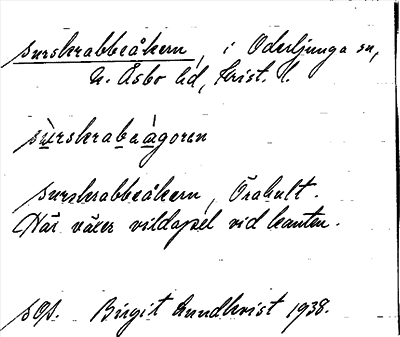 surskrabbeåkern, i Oderljunga sn,
N. Åsbo hd, Krist. l.
sùrskrabeàgoren
surskrabbeåkern, Örahult.
Här växer vildapel vid kanten.
sOp. Birgit Lundkvist 1938.